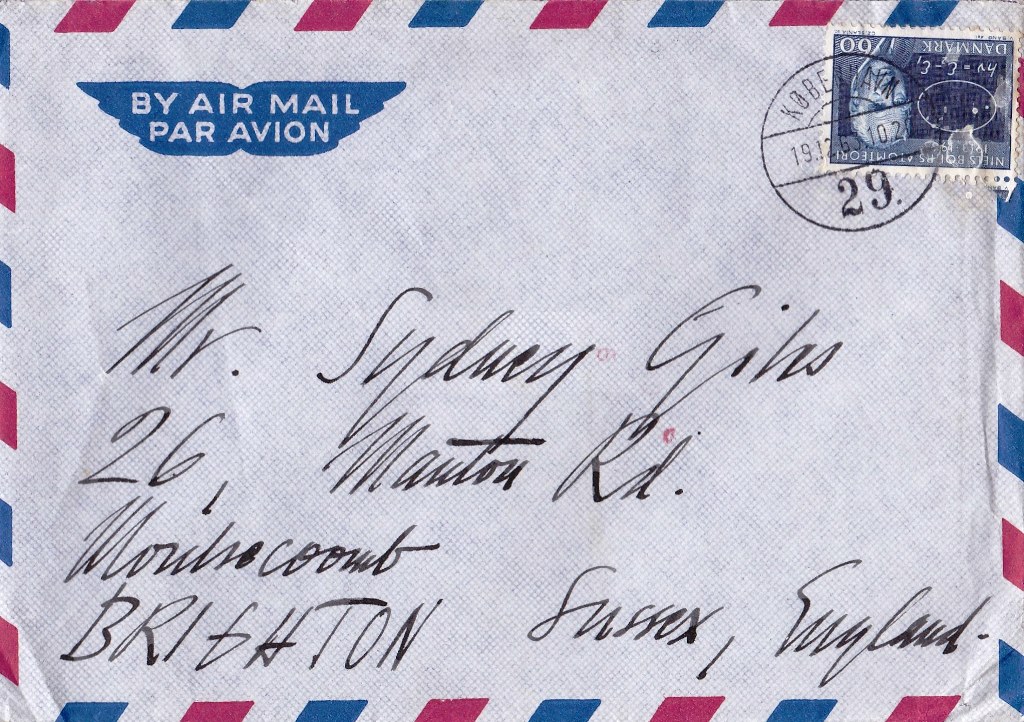 BY AIR MAIL
PAR AVION
60
DANMARK
hν = ε - ε
NIELS BOHRS ATOMTEORI
KØBENHAVN
19.12.63.10.
29.
Mr. Sydney Giles
26, Manton Rd.
Moulsecoomb
BRIGHTON Sussex, England.